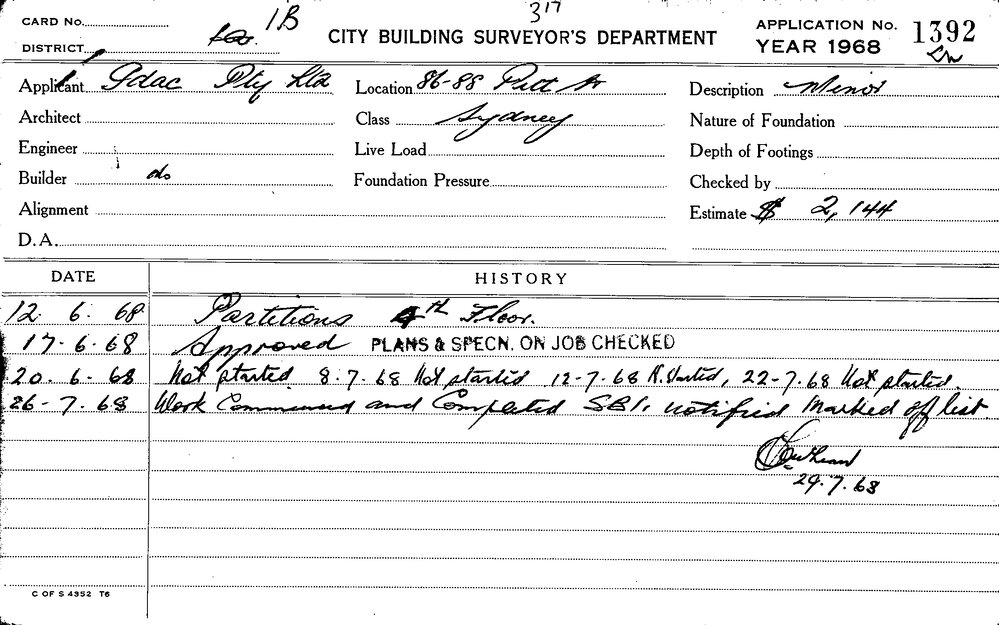 CARD No. 1B 317 APPLICATION No. 1392
DISTRICT CITY BUILDING SURVEYOR'S DEPARTMENT YEAR 1968
Applicant Pty Ltd Location 86-88 Pitt St Description Minor
Architect Class Sydney Nature of Foundation
Engineer Live Load Depth of Footings
Builder do Foundation Pressure Checked by
Alignment Estimate $ 2,144
D.A.
DATE HISTORY
12. 6. 68 Partitions 4th Floor.
17-6-68 Approved PLANS & SPECN. ON JOB CHECKED
20. 6. 68 Not started 8.7.68 Not started 12-7.68 N. Started, 22-7.68 Not started.
26-7.68 Work Commenced and Completed SBI. notified Marked off list.
29.7.68
C OF S 4352 T6